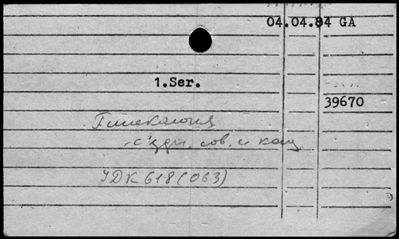 04.04.84 GA
1.Ser.
39670
Гинекология
-съезды, сов. и кон
УДК 618(063)